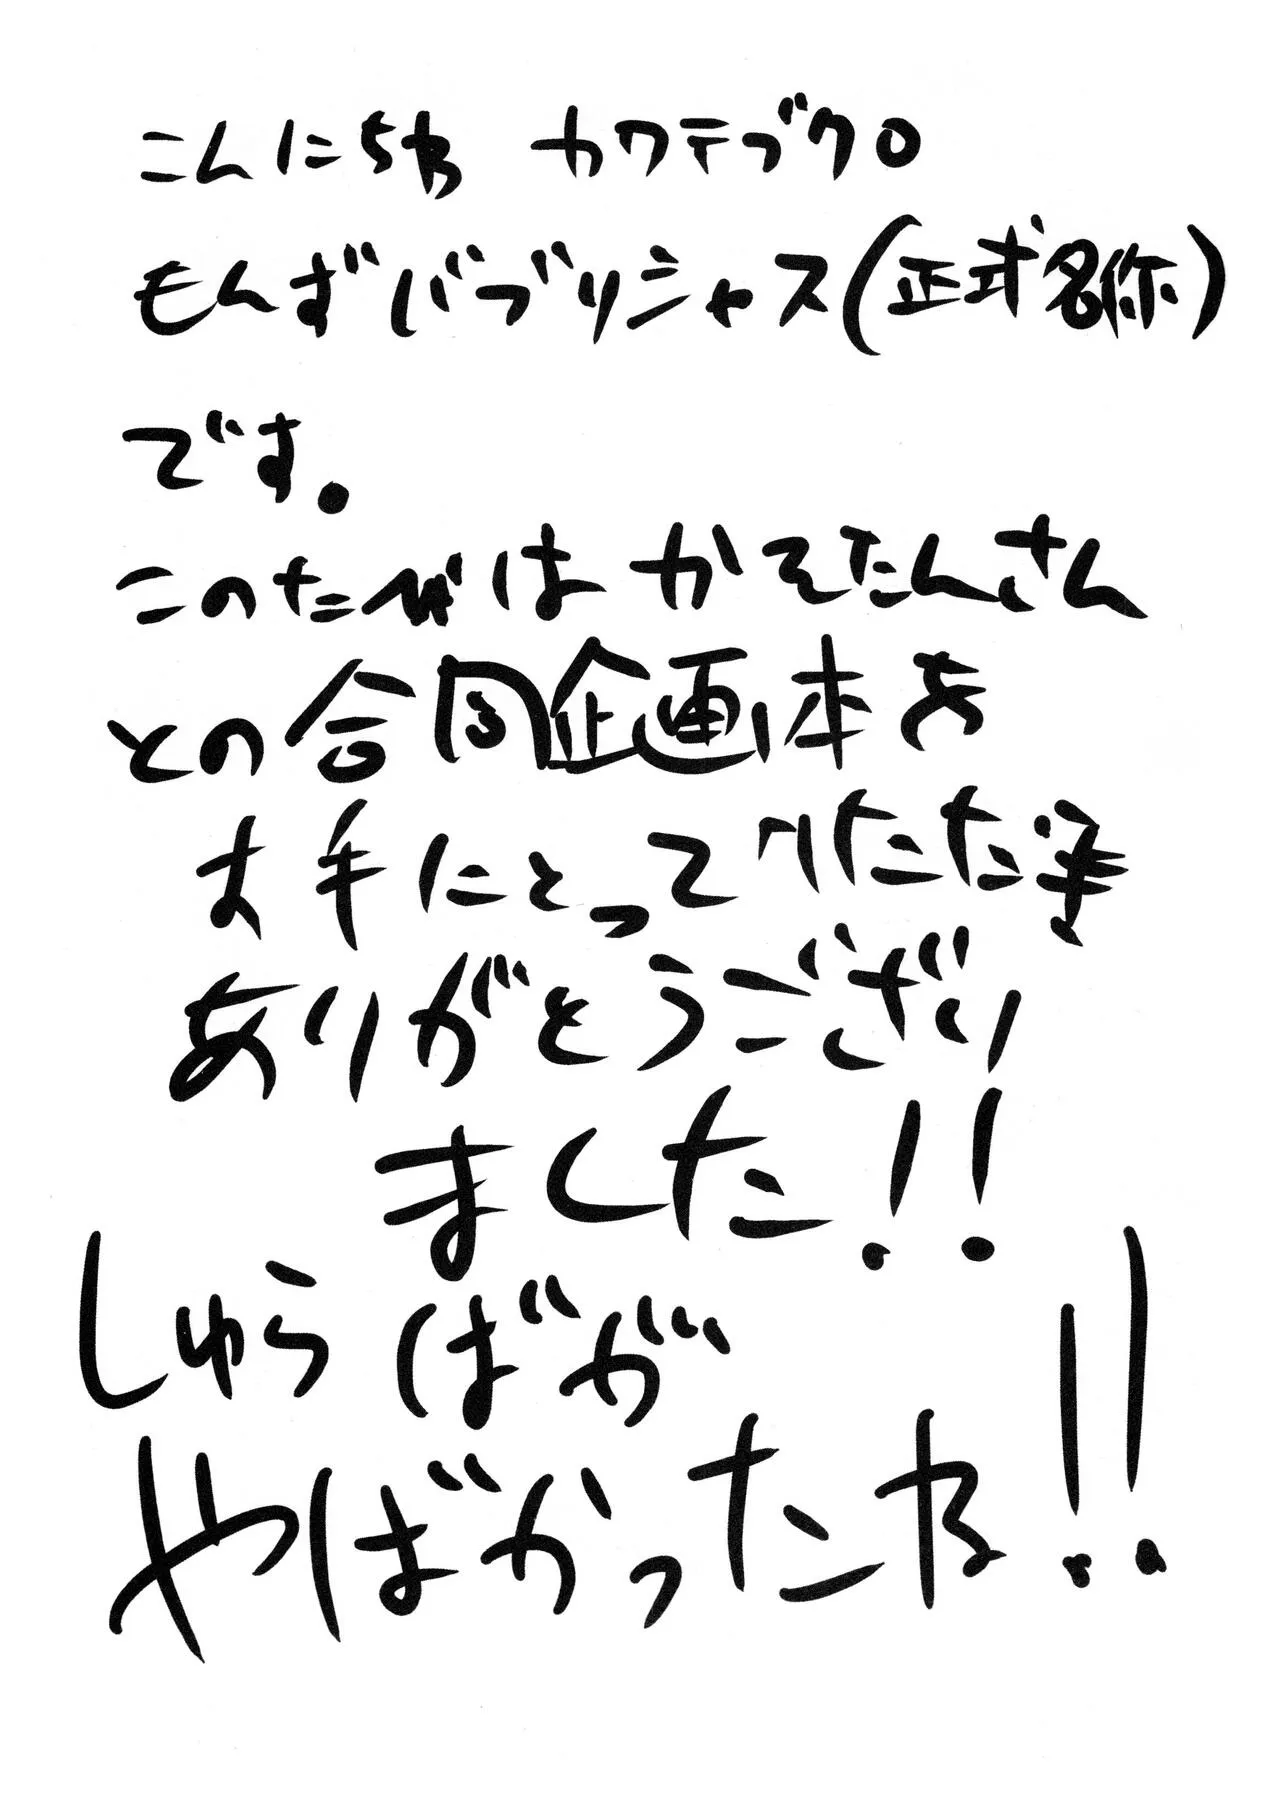 こんにちわ カワテブクロ
もんずバブリシャス(正式名称)
です。
このたびは かそたんさん
との合同企画本を
お手にとって
ありがとうござい
ました!!
しゅらばが
やばかったね!!